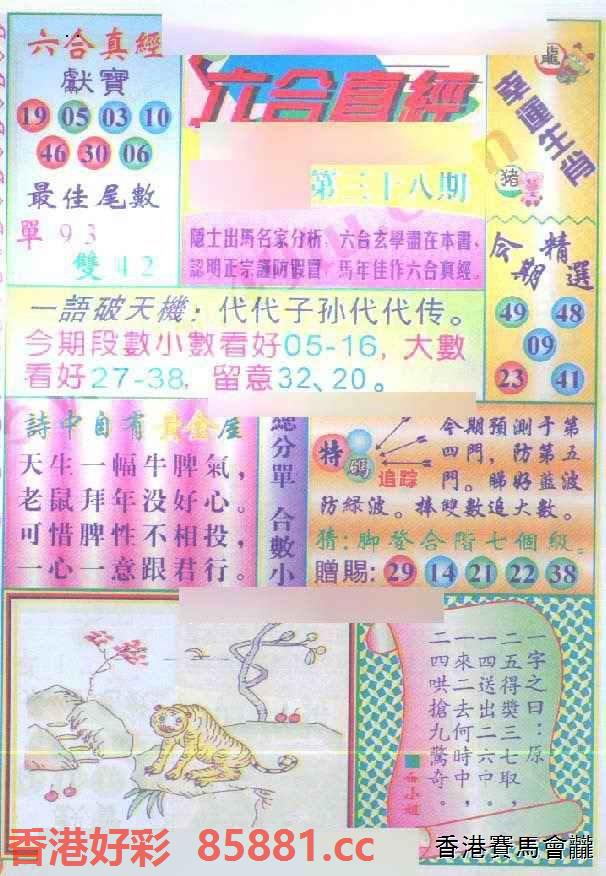 六合真經
獻寶
19 05 03 10
46 30 06
最佳尾數
單93
雙42
六合真經
第三十八期
隱士出馬名家分析，六合玄學盡在本書，
認明正宗謹防假冒，馬年佳作六合真經。
龍
幸運生肖
猪
今期精選
49 48
09
23 41
一語破天機：代代子孙代代传。
今期段數小數看好05-16，大數
看好27-38，留意32、20。
詩中自有黃金屋
天生一幅牛脾氣，
老鼠拜年没好心。
可惜脾性不相投，
一心一意跟君行。
總分單 合數小
特碼
追踪
今期預測于第
四門，防第五
門。睇好藍波
防緑波。捧雙數追大數。
猜：脚登合階七個級。
贈賜：29 14 21 22 38
一字之曰：原
二五得獎三七取，
一四送出二六口，
一來二去何時中，
二四哄搶九驚奇。
香港好彩 85881.cc
香港賽馬會